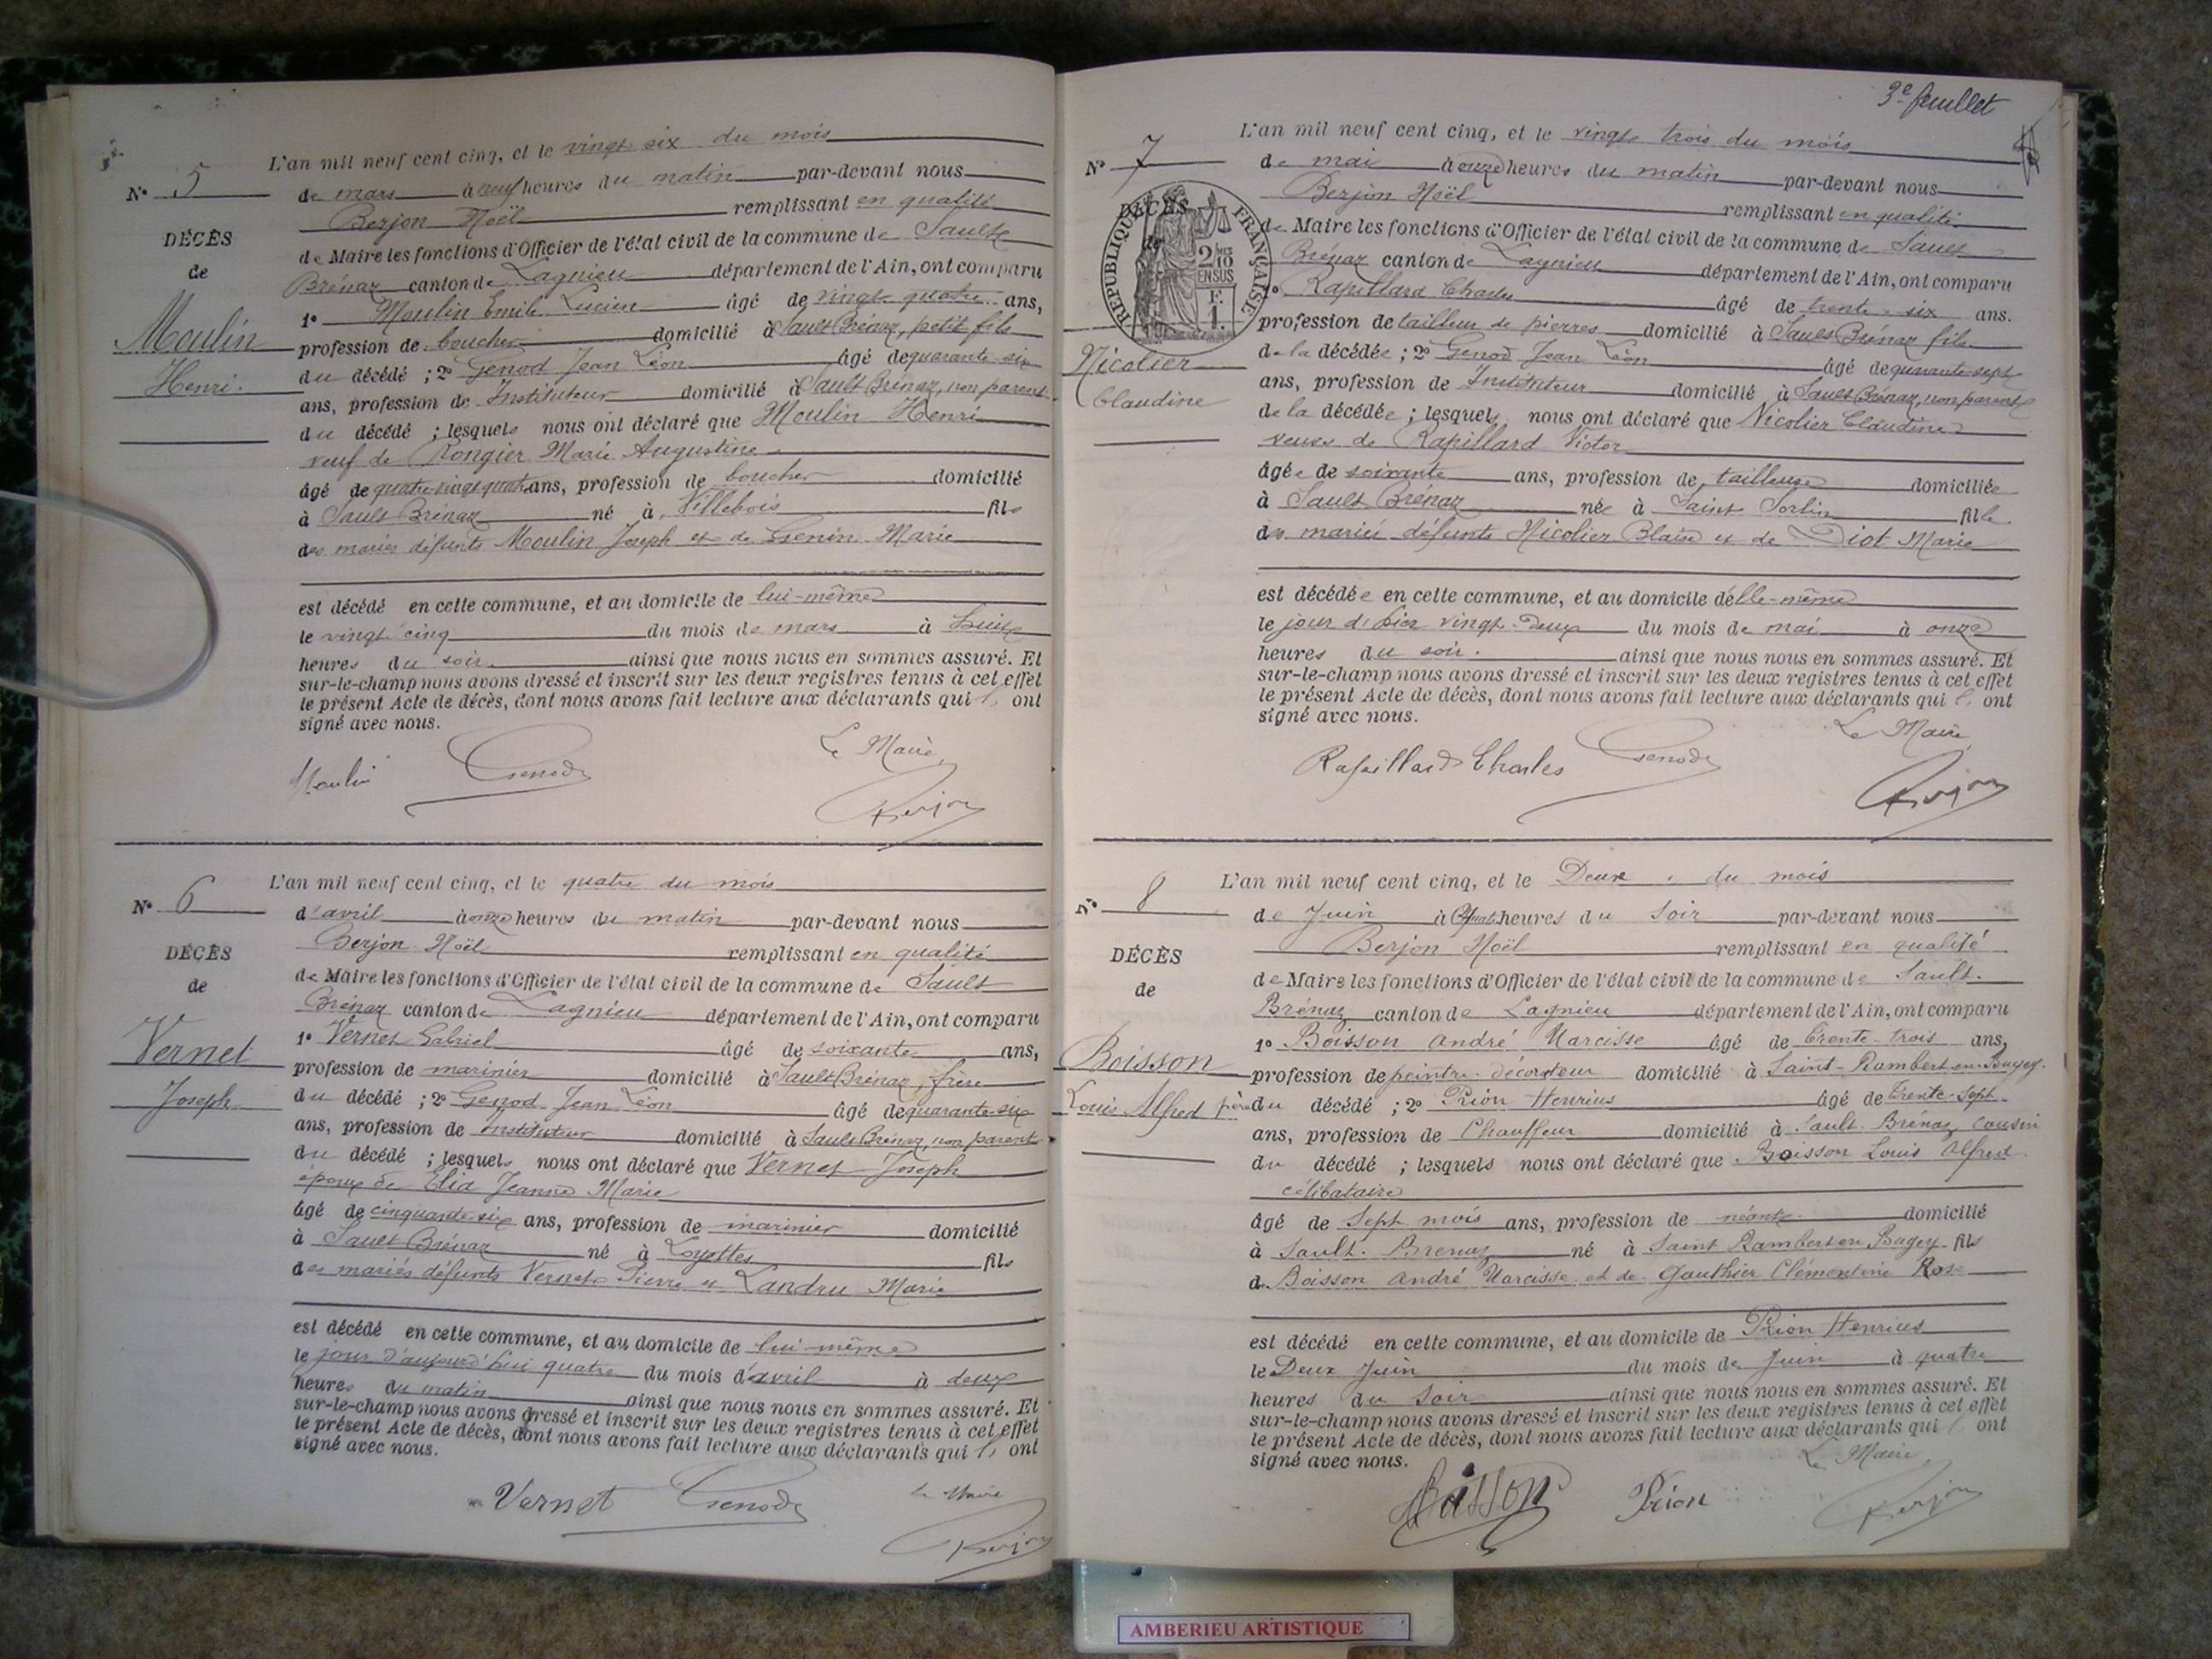 N° 5
DÉCÈS
de
Moulin
Henri.
L'an mil neuf cent cinq, et le vingt six du mois
de mars à neuf heures du matin par-devant nous
Berjon Noël remplissant en qualité
de Maire les fonctions d'Officier de l'état civil de la commune de Sault
Brénaz canton de Lagnieu département de l'Ain, ont comparu
1° Moulin Emile Lucien âgé de vingt quatre ans,
profession de boucher domicilié à Sault Brénaz, petit fils
du décédé ; 2° Genod Jean Léon âgé de quarante-six
ans, profession de Instituteur domicilié à Sault Brénaz, non parent
du décédé ; lesquels nous ont déclaré que Moulin Henri
veuf de Rongier Marie Augustine
âgé de quatre vingt quatre ans, profession de boucher domicilié
à Sault Brénaz né à Villebois fils
des mariés défunts Moulin Joseph et de Genin Marie
est décédé en cette commune, et au domicile de lui-même
le vingt cinq du mois de mars à huit
heures du soir. ainsi que nous nous en sommes assuré. Et
sur-le-champ nous avons dressé et inscrit sur les deux registres tenus à cet effet
le présent Acte de décès, dont nous avons fait lecture aux déclarants qui l' ont
signé avec nous.
Le Maire,
Moulin Genod
Berjon
N° 6
DÉCÈS
de
Vernet
Joseph
L'an mil neuf cent cinq, et le quatre du mois
d'avril à onze heures du matin par-devant nous
Berjon Noël remplissant en qualité
de Maire les fonctions d'Officier de l'état civil de la commune de Sault
Brénaz canton de Lagnieu département de l'Ain, ont comparu
1° Vernet Gabriel âgé de soixante ans,
profession de marinier domicilié à Sault Brénaz, frère
du décédé ; 2° Genod Jean Léon âgé de quarante-six
ans, profession de Instituteur domicilié à Sault Brénaz, non parent
du décédé ; lesquels nous ont déclaré que Vernet Joseph
époux de Elia Jeanne Marie
âgé de cinquante-six ans, profession de marinier domicilié
à Sault Brénaz né à Loyettes fils
des mariés défunts Vernet Pierre et Landru Marie
est décédé en cette commune, et au domicile de lui-même
le jour d'aujourd'hui quatre du mois d'avril à deux
heures du matin ainsi que nous nous en sommes assuré. Et
sur-le-champ nous avons dressé et inscrit sur les deux registres tenus à cet effet
le présent Acte de décès, dont nous avons fait lecture aux déclarants qui l' ont
signé avec nous.
Vernet Genod Le Maire
Berjon
3e feuillet
N° 7
DÉCÈS
RÉPUBLIQUE FRANÇAISE
2/10
EN SUS
F.
1.
Nicolier
Claudine
L'an mil neuf cent cinq, et le vingt trois du mois
de mai à onze heures du matin par-devant nous
Berjon Noël remplissant en qualité
de Maire les fonctions d'Officier de l'état civil de la commune de Sault
Brénaz canton de Lagnieu département de l'Ain, ont comparu
1° Rapillard Charles âgé de trente-six ans.
profession de tailleur de pierres domicilié à Sault Brénaz fils
de la décédée ; 2° Genod Jean Léon âgé de quarante-sept
ans, profession de Instituteur domicilié à Sault Brénaz, non parent
de la décédée ; lesquels nous ont déclaré que Nicolier Claudine
veuve de Rapillard Victor
âgée de soixante ans, profession de tailleuse domiciliée
à Sault Brénaz née à Saint Sorlin fille
des mariés défunts Nicolier Blaise et de Diot Marie
est décédée en cette commune, et au domicile d'elle-même
le jour d'hier vingt-deux du mois de mai à onze
heures du soir. ainsi que nous nous en sommes assuré. Et
sur-le-champ nous avons dressé et inscrit sur les deux registres tenus à cet effet
le présent Acte de décès, dont nous avons fait lecture aux déclarants qui l' ont
signé avec nous.
Le Maire,
Rapillard Charles Genod
Berjon
N° 8
DÉCÈS
de
Boisson
Louis Alfred
L'an mil neuf cent cinq, et le Deux du mois
de Juin à Quatre heures du soir par-devant nous
Berjon Noël remplissant en qualité
de Maire les fonctions d'Officier de l'état civil de la commune de Sault.
Brénaz canton de Lagnieu département de l'Ain, ont comparu
1° Boisson André Narcisse âgé de trente-trois ans,
profession de peintre-décorateur domicilié à Saint-Rambert-en-Bugey.
père du décédé ; 2° Prion Henrius âgé de trente-sept
ans, profession de Chauffeur domicilié à Sault-Brénaz cousin
du décédé ; lesquels nous ont déclaré que Boisson Louis Alfred
célibataire
âgé de Sept mois ans, profession de néante domicilié
à Sault-Brenaz né à Saint Rambert en Bugey fils
de Boisson André Narcisse et de Gauthier Clémentine Rose
est décédé en cette commune, et au domicile de Prion Henrius
le Deux Juin du mois de Juin à quatre
heures du Soir ainsi que nous nous en sommes assuré. Et
sur-le-champ nous avons dressé et inscrit sur les deux registres tenus à cet effet
le présent Acte de décès, dont nous avons fait lecture aux déclarants qui l' ont
signé avec nous.
Le Maire,
Boisson Prion Berjon
AMBERIEU ARTISTIQUE